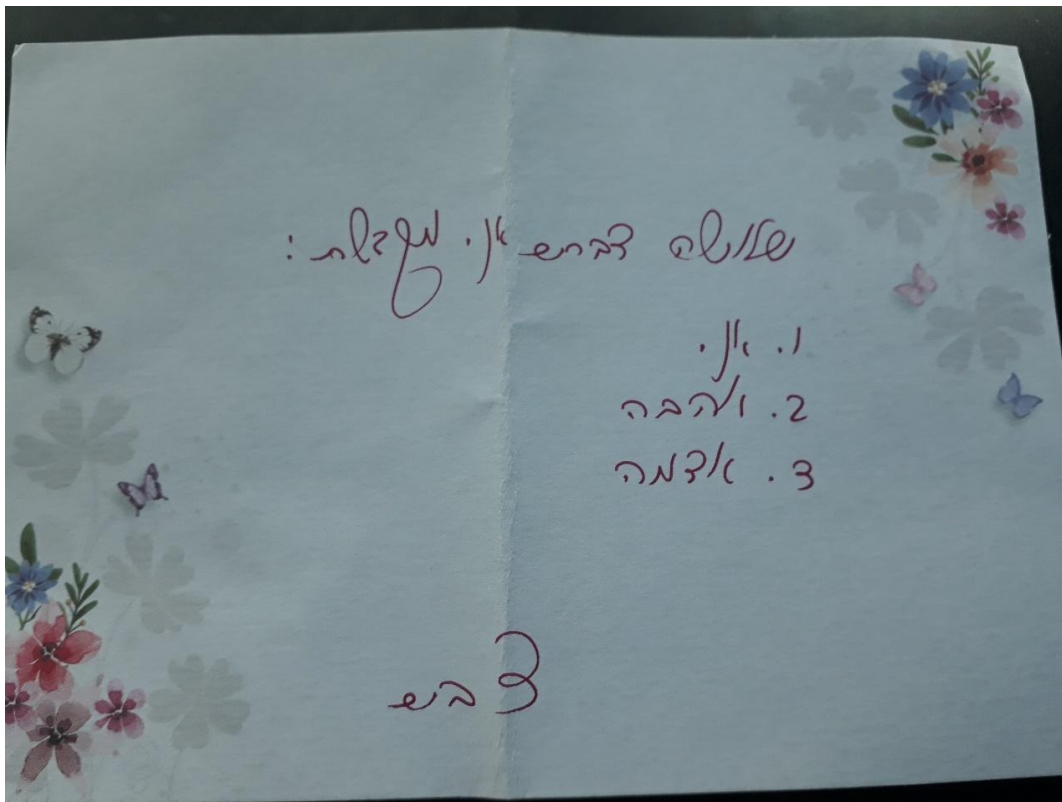 שלושה דברים אני מקדשת:
1. אני
2. אהבה
3. אדמה
דבש